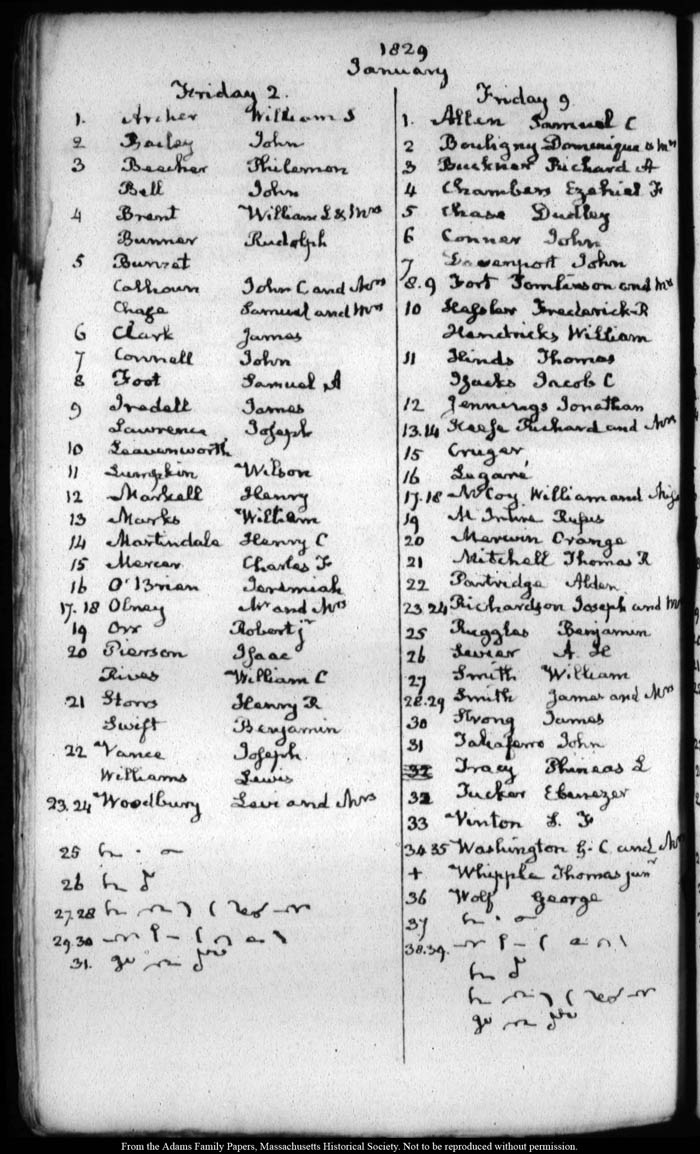 1829
January
Friday 2.
1. Archer William S
2 Bailey John
3 Beecher Philemon
Bell John
4 Brent William L & Mrs
Bunner Rudolph
5 Bunzat
Calhoun John C and Mrs
Chase Samuel and Mrs
6 Clark James
7 Connell John
8 Foot Samuel A
9 Iredell James
Lawrence Joseph
10 Leavenworth
11 Lumpkin Wilson
12 Markell Henry
13 Marks William
14 Martindale Henry C
15 Mercer Charles F
16 O'Brian Jeremiah
17. 18 Olney Mr and Mrs
19 Orr Robert jr
20 Pierson Isaac
Rives William C
21 Storrs Henry R
Swift Benjamin
22 Vance Joseph
Williams Lewis
23. 24 Woodbury Levi and Mrs
25
26
27.28
29.30
31.
Friday 9
1. Allen Samuel C
2 Bouligny Dominique & Mrs
3 Buckner Richard A
4 Chambers Ezekiel F
5 Chase Dudley
6 Conner John
7 Davenport John
8.9 Fort Tomlinson and Mrs
10 Hassler Frederick R
Hendricks William
11 Hinds Thomas
Isacks Jacob C
12 Jennings Jonathan
13.14 Keese Richard and Mrs
15 Cruger
16 Legaré
17.18 McCoy William and Miss
19 M Intire Rufus
20 Merwin Orange
21 Mitchell Thomas R
22 Partridge Alden
23.24 Richardson Joseph and M
25 Ruggles Benjamin
26 Sevier A H
27 Smith William
28.29 Smith James and Mrs
30 Strong James
31 Taliaferro John
32 Tracy Phineas L
32 Tucker Ebenezer
33 Vinton S. F
34 35 Washington G. C. and Mrs
+ Whipple Thomas junr
36 Wolf George
37
38.39.
From the Adams Family Papers, Massachusetts Historical Society. Not to be reproduced without permission.